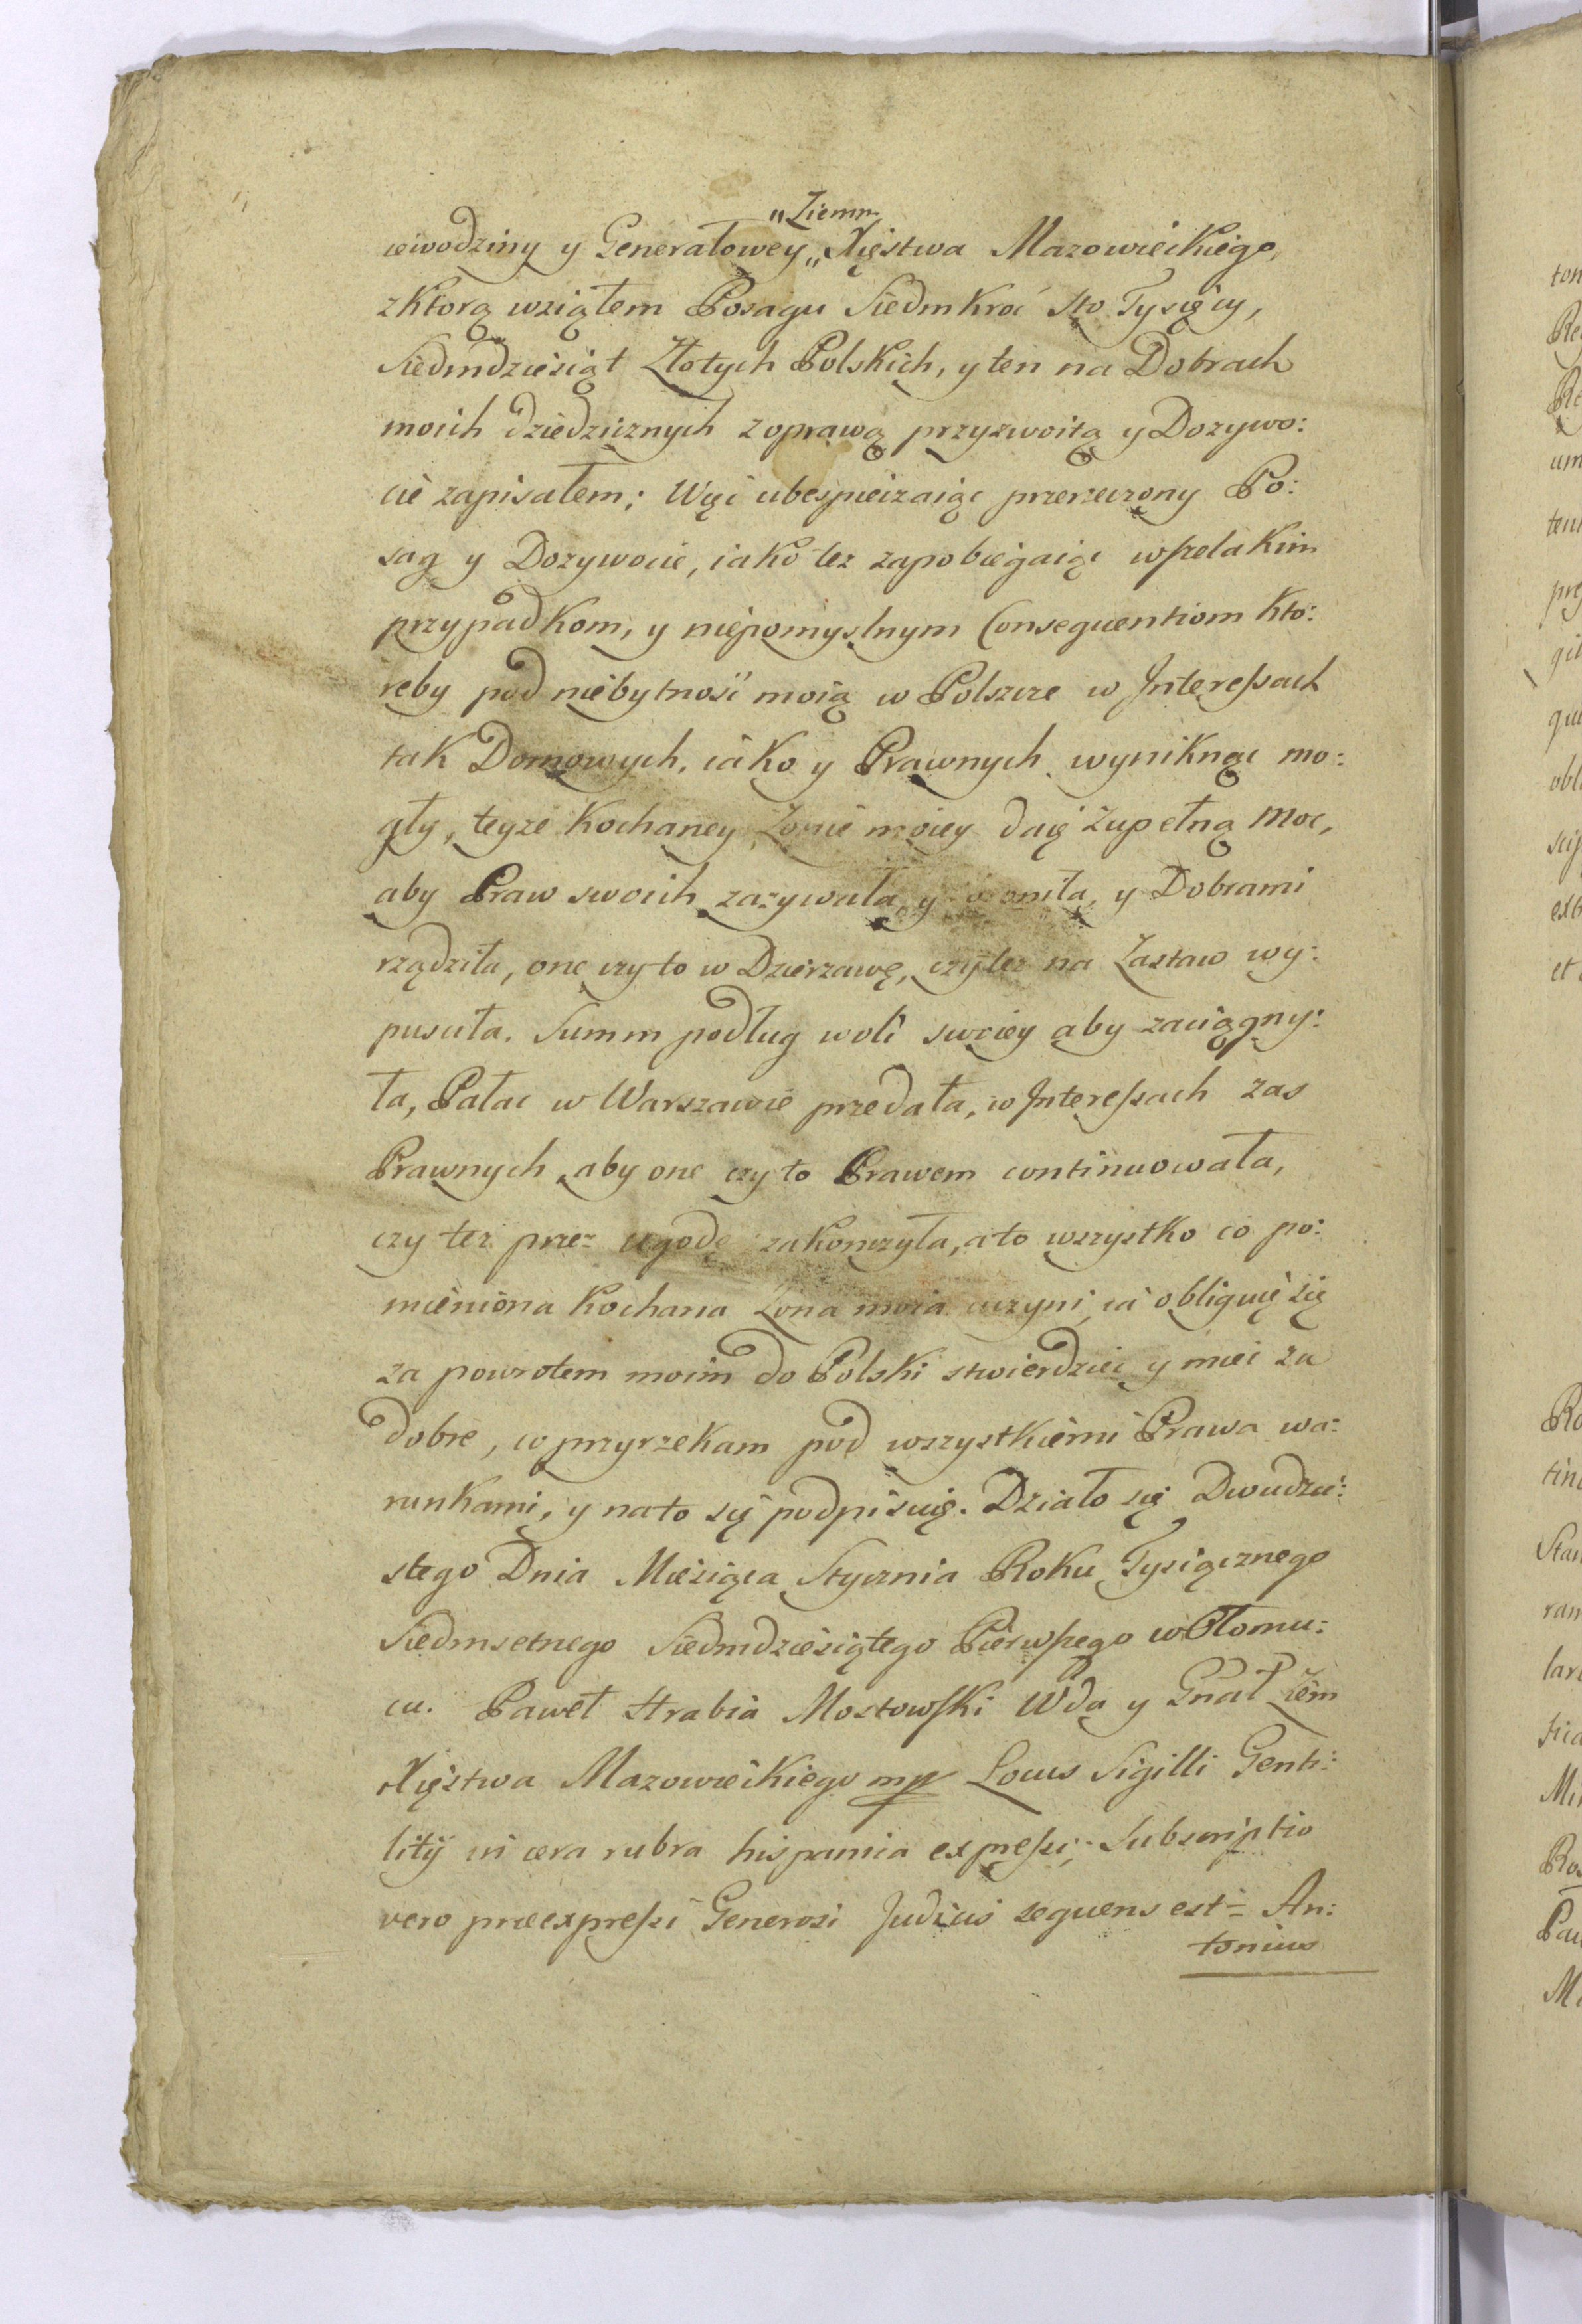 „Ziemr
iewodziny y Generałowey „ Xięstwa Mazowieckiego,
z ktorą wziąłem Posagu Siedmkroć Sto Tysięcy,
Siedmdziesiąt Złotych Polskich, y ten na Dobrach
moich dziedzicznych z oprawą przyzwoitą y Dozywo:
cie zapisałem; Więc ubespieczaiąc przerzeczony Po:
sag y Dozywocie, iako tez zapobiegaiąc wszelakim
przypadkom, y niepomyslnym Consequentiom kto:
reby pod niebytność moią w Polszcze w Interessach
tak Domowych, iako y Prawnych wyniknąc mo:
gły, teyze kochaney Zonie moiey daię zupełną moc,
aby Praw swoich zazywała, y broniła, y Dobrami
rządziła, one czy to w Dzierzawę, czy tez na Zastaw wy:
pusciła. Summ podług woli swoiey aby zaciągny:
ła, Pałac w Warszawie przedała, w Interessach zas
Prawnych, aby one czy to Prawem continuowała,
czy tez przez ugodę zakonczyła, a to wszystko co po:
mieniona kochana Zona moia uczyni, ia obliguię się
za powrotem moim do Polski stwierdzic y miec za
dobre, co przyrzekam pod wszystkiemi Prawa wa:
runkami, y na to się podpisuię. Działo się Dwudzie:
stego Dnia Miesiąca Stycznia Roku Tysiącznego
Siedmsetnego Siedmdziesiątego Pierwszego w Ołomu:
cu. Paweł Hrabia Mostowski Wda y Gnał Ziem
Xięstwa Mazowieckiego mp Locus Sigilli Genti:
litij in cera rubra hispanica expressi; Subscriptio
vero praeexpressi Generosi Judicis sequens est = An:
tonius